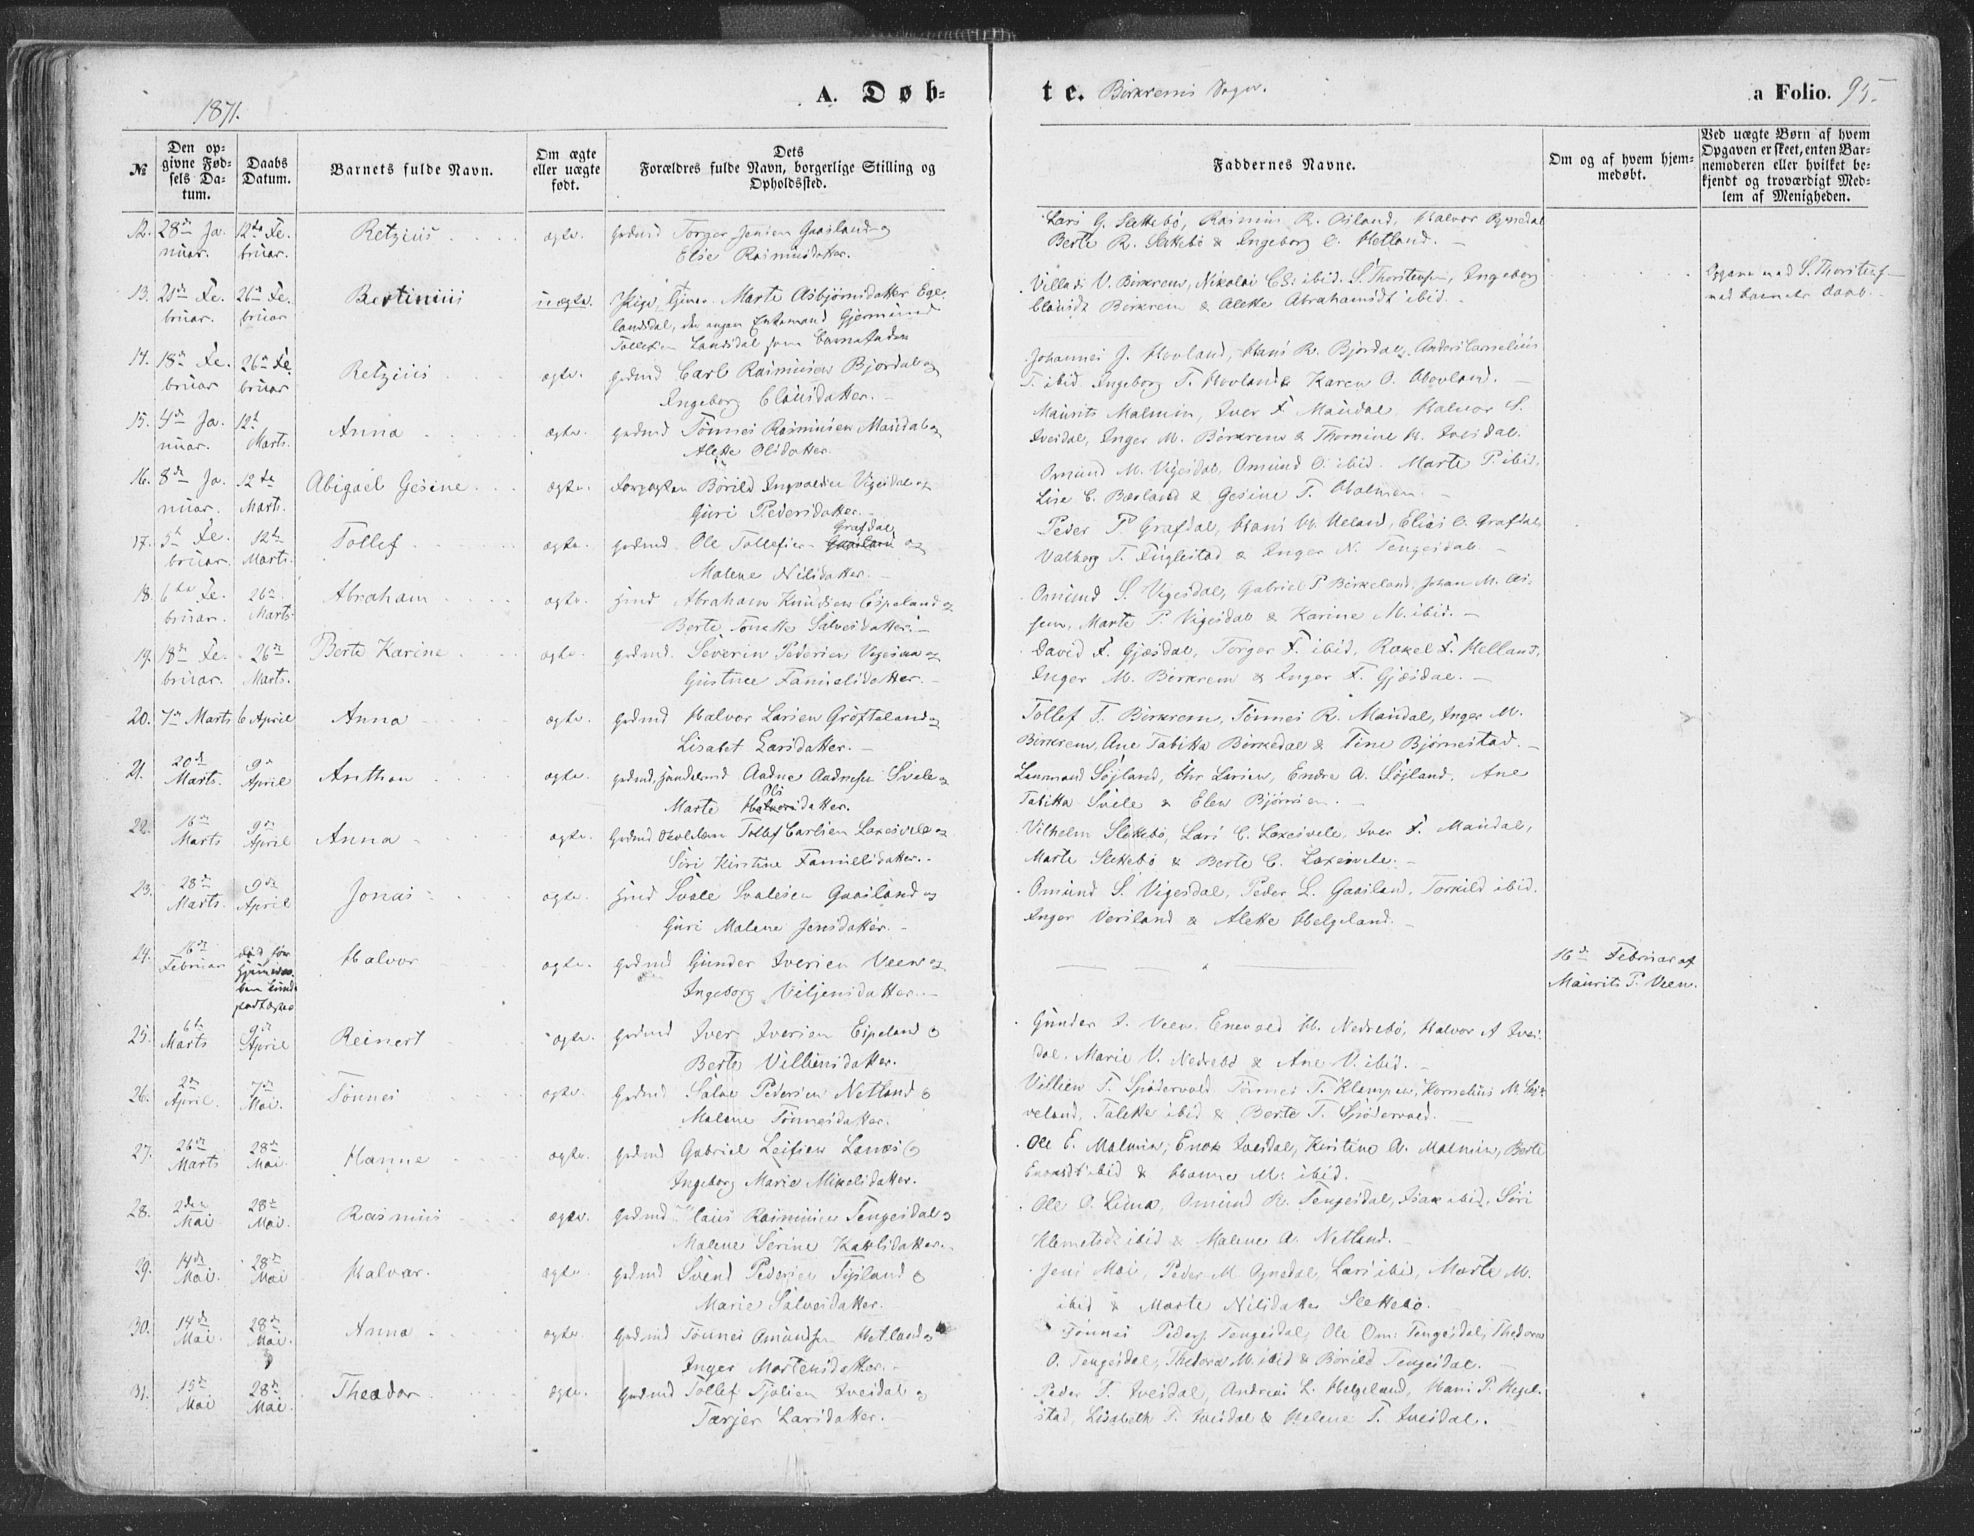 1871.
A. Døb-
te. Birkrems Sogn.
a Folio. 95.
№
Den opgivne Fødsels Datum.
Daabs Datum.
Barnets fulde Navn.
Om ægte eller uægte født.
Dets Forældres fulde Navn, borgerlige Stilling og Opholdssted.
Faddernes Navne.
Om og af hvem hjemmedøbt.
Ved uægte Børn af hvem Opgaven er skeet, enten Barnemoderen eller hvilket bekjendt og troværdigt Medlem af Menigheden.
12. 28de Ja- 12te Fe- Retzius ægte. Gdmd Torger Jensen Gaasland og
nuar. bruar. Elise Rasmusdatter.
Lars G. Slettebø, Rasmus R. Osland, Halvor
Berte R. Slettebø & Ingeborg O. Hetland.
13. Fe- 26de Fe- Bertinius uægte. Pige Marte Asbjørnsdatter Ege-
bruar. bruar landsdal, der angav Enkemand Gjermund
Tollefsen Landsdal som Barnefader
Villads V. Birkrem, Nikolai ibid. S. Thorstensen, Ingeborg
Clausdt Birkrem & Alette Abrahamsdt ibid.
S. Thorstensen
ved Barnets Daab.
14. 18de Fe- 26de Fe- Retzius ægte. Gdmd Carl Rasmusen Bjordal og
bruar bruar Ingeborg Clausdatter.
Johannes J. Hovland, Hans R. Bjordal, Anders Cornelius
T. ibid Ingeborg T. Hovland & Karen O. Hovland.
15. 4de Ja- 12te Anna ægte. Gdmd Tønnes Rasmusen Maudal og
nuar. Marts. Alette Olsdatter
Maurits Malmin, Iver F. Maudal, Halvor S.
Ivesdal, Inger M. Birkrem & Thomine H. Ivesdal.
16. 8de Ja- 12te Abigael Gesine ægte. Forpagter Børild Ingvaldsen Vigesdal og
nuar. Marts. Guri Pedersdatter.
Omund M. Vigesdal, Omund O. ibid. Marte P. ibid.
Lise C. Bærland & Gesine T. Holmen.
17. 5te Fe- 12te Tollef ægte. Gdmd. Ole Tollefsen Grafdal og
bruar. Marts. Malene Nilsdatter.
Peder P Grafdal, Hans M. Ueland, Elias O. Grafdal
Valborg T. Fuglestad & Inger N. Tengesdal.
18. 6te Fe- 26de Abraham ægte. Abraham Knudsen Espeland og
bruar. Marts Berte Tonette Salvesdatter.
Omund S. Vigesdal, Gabriel P Birkeland, Johan M.
Marte P. Vigesdal & Karine M. ibid.
19. 18de Fe- 26de Berte Karine ægte. Gdmd. Severin Pedersen Vigesaa og
bruar. Marts. Gustave Samuelsdatter.
David F. Gjæsdal, Torger F. ibid, Rakel F. Helland,
Inger M. Birkrem & Inger F. Gjæsdal.
20. 7de Marts 6 April Anna ægte Gdmd Halvor Larsen Grøfteland og
Lisabet Larsdatter.
Tollef T. Birkrem, Tønnes R. Maudal, Inger M.
Birkrem, Ane Tabitta Birkedal & Tine Bjørnestad.
21. 20de 9de Anthon ægte. Gdmd, Handelsmd Aadne Aadnesen Svele og
Marts. April Marte Olsdatter.
Lensmand Søyland, Chr Larsen, Endre A. Søyland, Ane
Tabitta Svele & Elen Bjørnsen.
22. 16de 9de Anna ægte. Gdmd Tollef Carlsen Laxesvele og
Marts April Siri Kirstine Samuelsdatter.
Vilhelm Slettebø, Lars C. Laxesvele, Iver F. Maudal,
Marte Slettebø & Berte C. Laxesvele.
23. 28de 9de Jonas ægte. Svale Svalesen Gaasland og
Marts. April Guri Malene Jensdatter.
Omund S. Vigesdal, Peder L. Gaasland, Torkild ibid.
Inger Veraland & Alette Helgeland.
24. 16de død før Halvor ægte. Gdmd Gunder Iversen Veen og
Februar Ingeborg Viljensdatter.
16de Februar af
Maurits P. Veen.
25. 6te 9de Reinert ægte. Gdmd Iver Iversen Espeland &
Marts April Berte Villumsdatter.
Gunder I. Veen, Enevald H. Nedrebø, Halvor A Ives-
dal. Marie V. Nedrebø & Ane V. ibid.
26. 2de 7de Tønnes ægte. Gdmd Salve Pedersen Netland &
April. Mai. Malene Tønnesdatter.
Villien T. Spødervold, Tønnes T. Klempen, Kornelius M.
veland, Talette ibid & Berte T. Spødervold.
27. 26de 28de Hanne ægte. Gdmd Gabriel Leifsen Lanæs &
Marts Mai Ingeborg Marie Mikelsdatter.
Ole E. Malmin, Enok Ivesdal, Kirstine A. Malmin, Berte
Enoksdt ibid & Hanne M. ibid.
28. 2den 28de Rasmus ægte. Gdmd Claus Rasmusen Tengesdal &
Mai Mai. Malene Serine Ketilsdatter.
Ole O. Lima, Omund R. Tengesdal, Isak ibid, Siri
Klemetsdt ibid & Malene A. Netland.
29. 14de 28de Halvar. ægte Gdmd Svend Pedersen Tysland &
Mai. Mai Marie Salvesdatter.
Jens Moi, Peder M. Ognedal, Lars ibid, Marte M.
ibid & Marte Nilsdatter Slettebø.
30. 14de 28de Anna ægte Gdmd Tønnes Omundsen Hetland &
Mai Mai. Inger Mortensdatter.
Tønnes Peders. Tengesdal, Ole Om: Tengesdal, Thedora
O. Tengesdal, Thedora M. ibid & Børild Tengesdal.
31. 15de 28de Theodor. ægte. Gdmd Tollef Tjølsen Ivesdal &
Mai Mai. Tærjer Larsdatter.
Peder T. Ivesdal, Andreas L. Helgeland, Hans P. Hegel-
stad, Lisabeth T. Ivesdal & Helene T. Ivesdal.